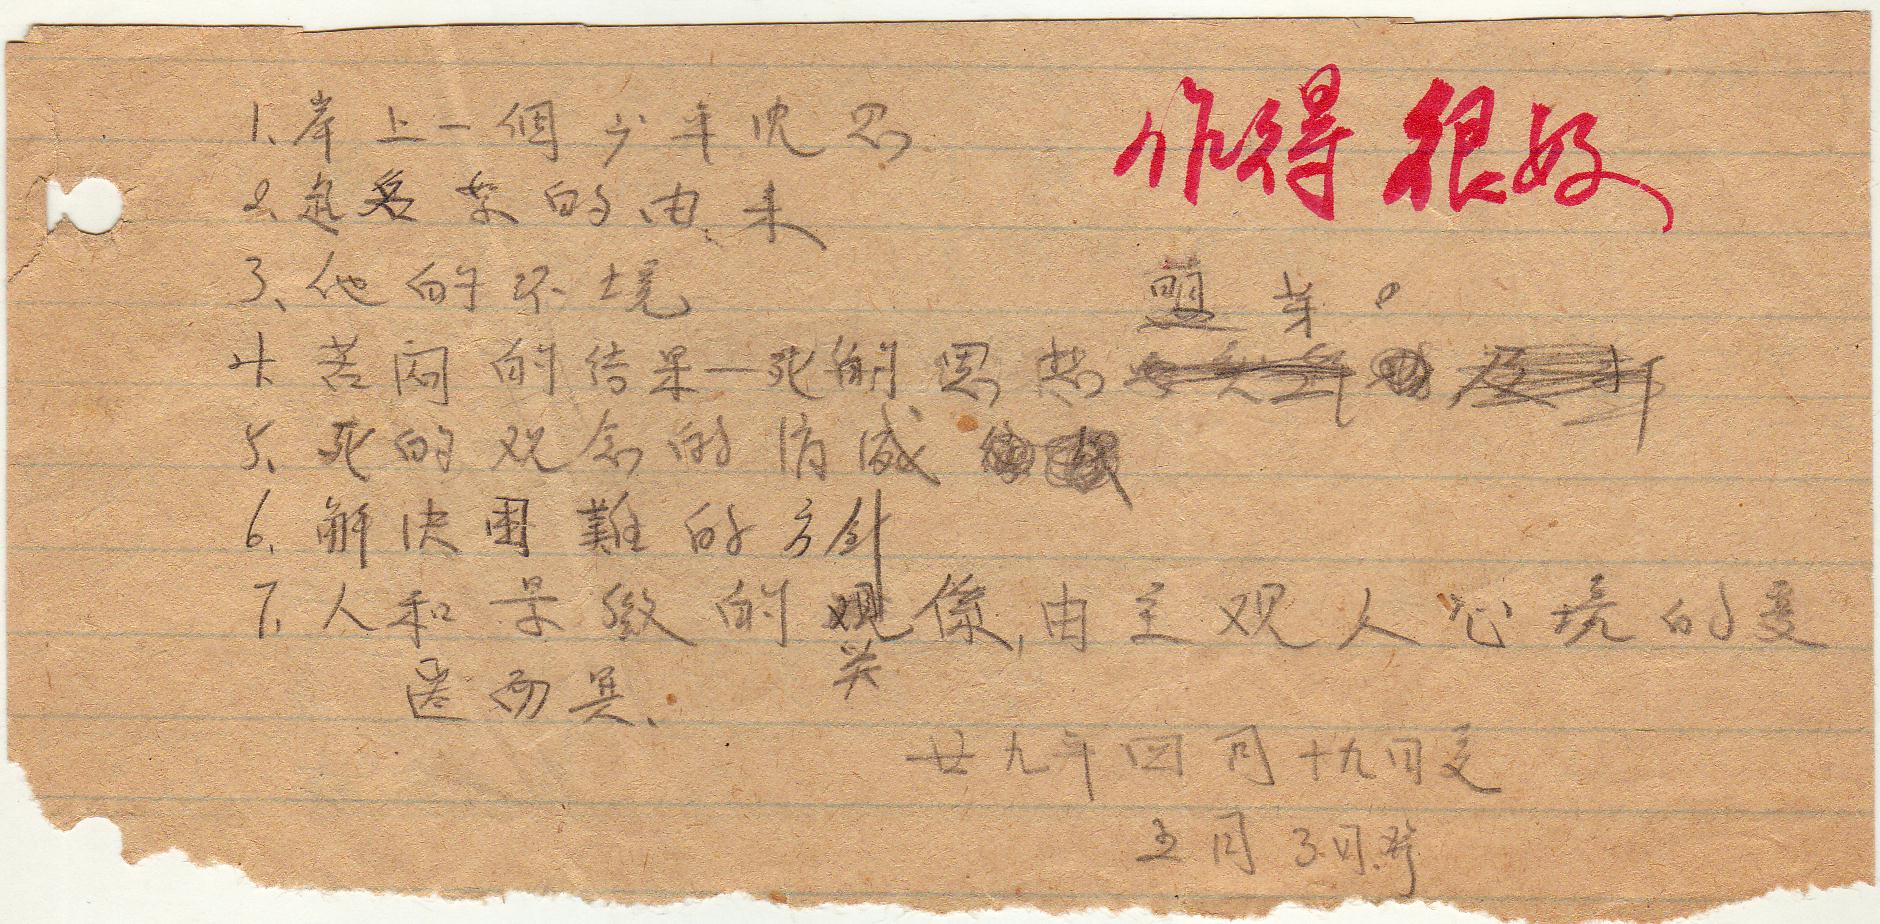 作得很好
1、岸上一個少年沈思
2、起名字的由来
3、他的环境
萌芽。
4、苦闷的结果—死的思想
5、死的观念的消灭
6、解决困難的方針
7、人和景緻的係,由主观人心境的变
关
而異、
廿九年四月十九日交
五月3日發